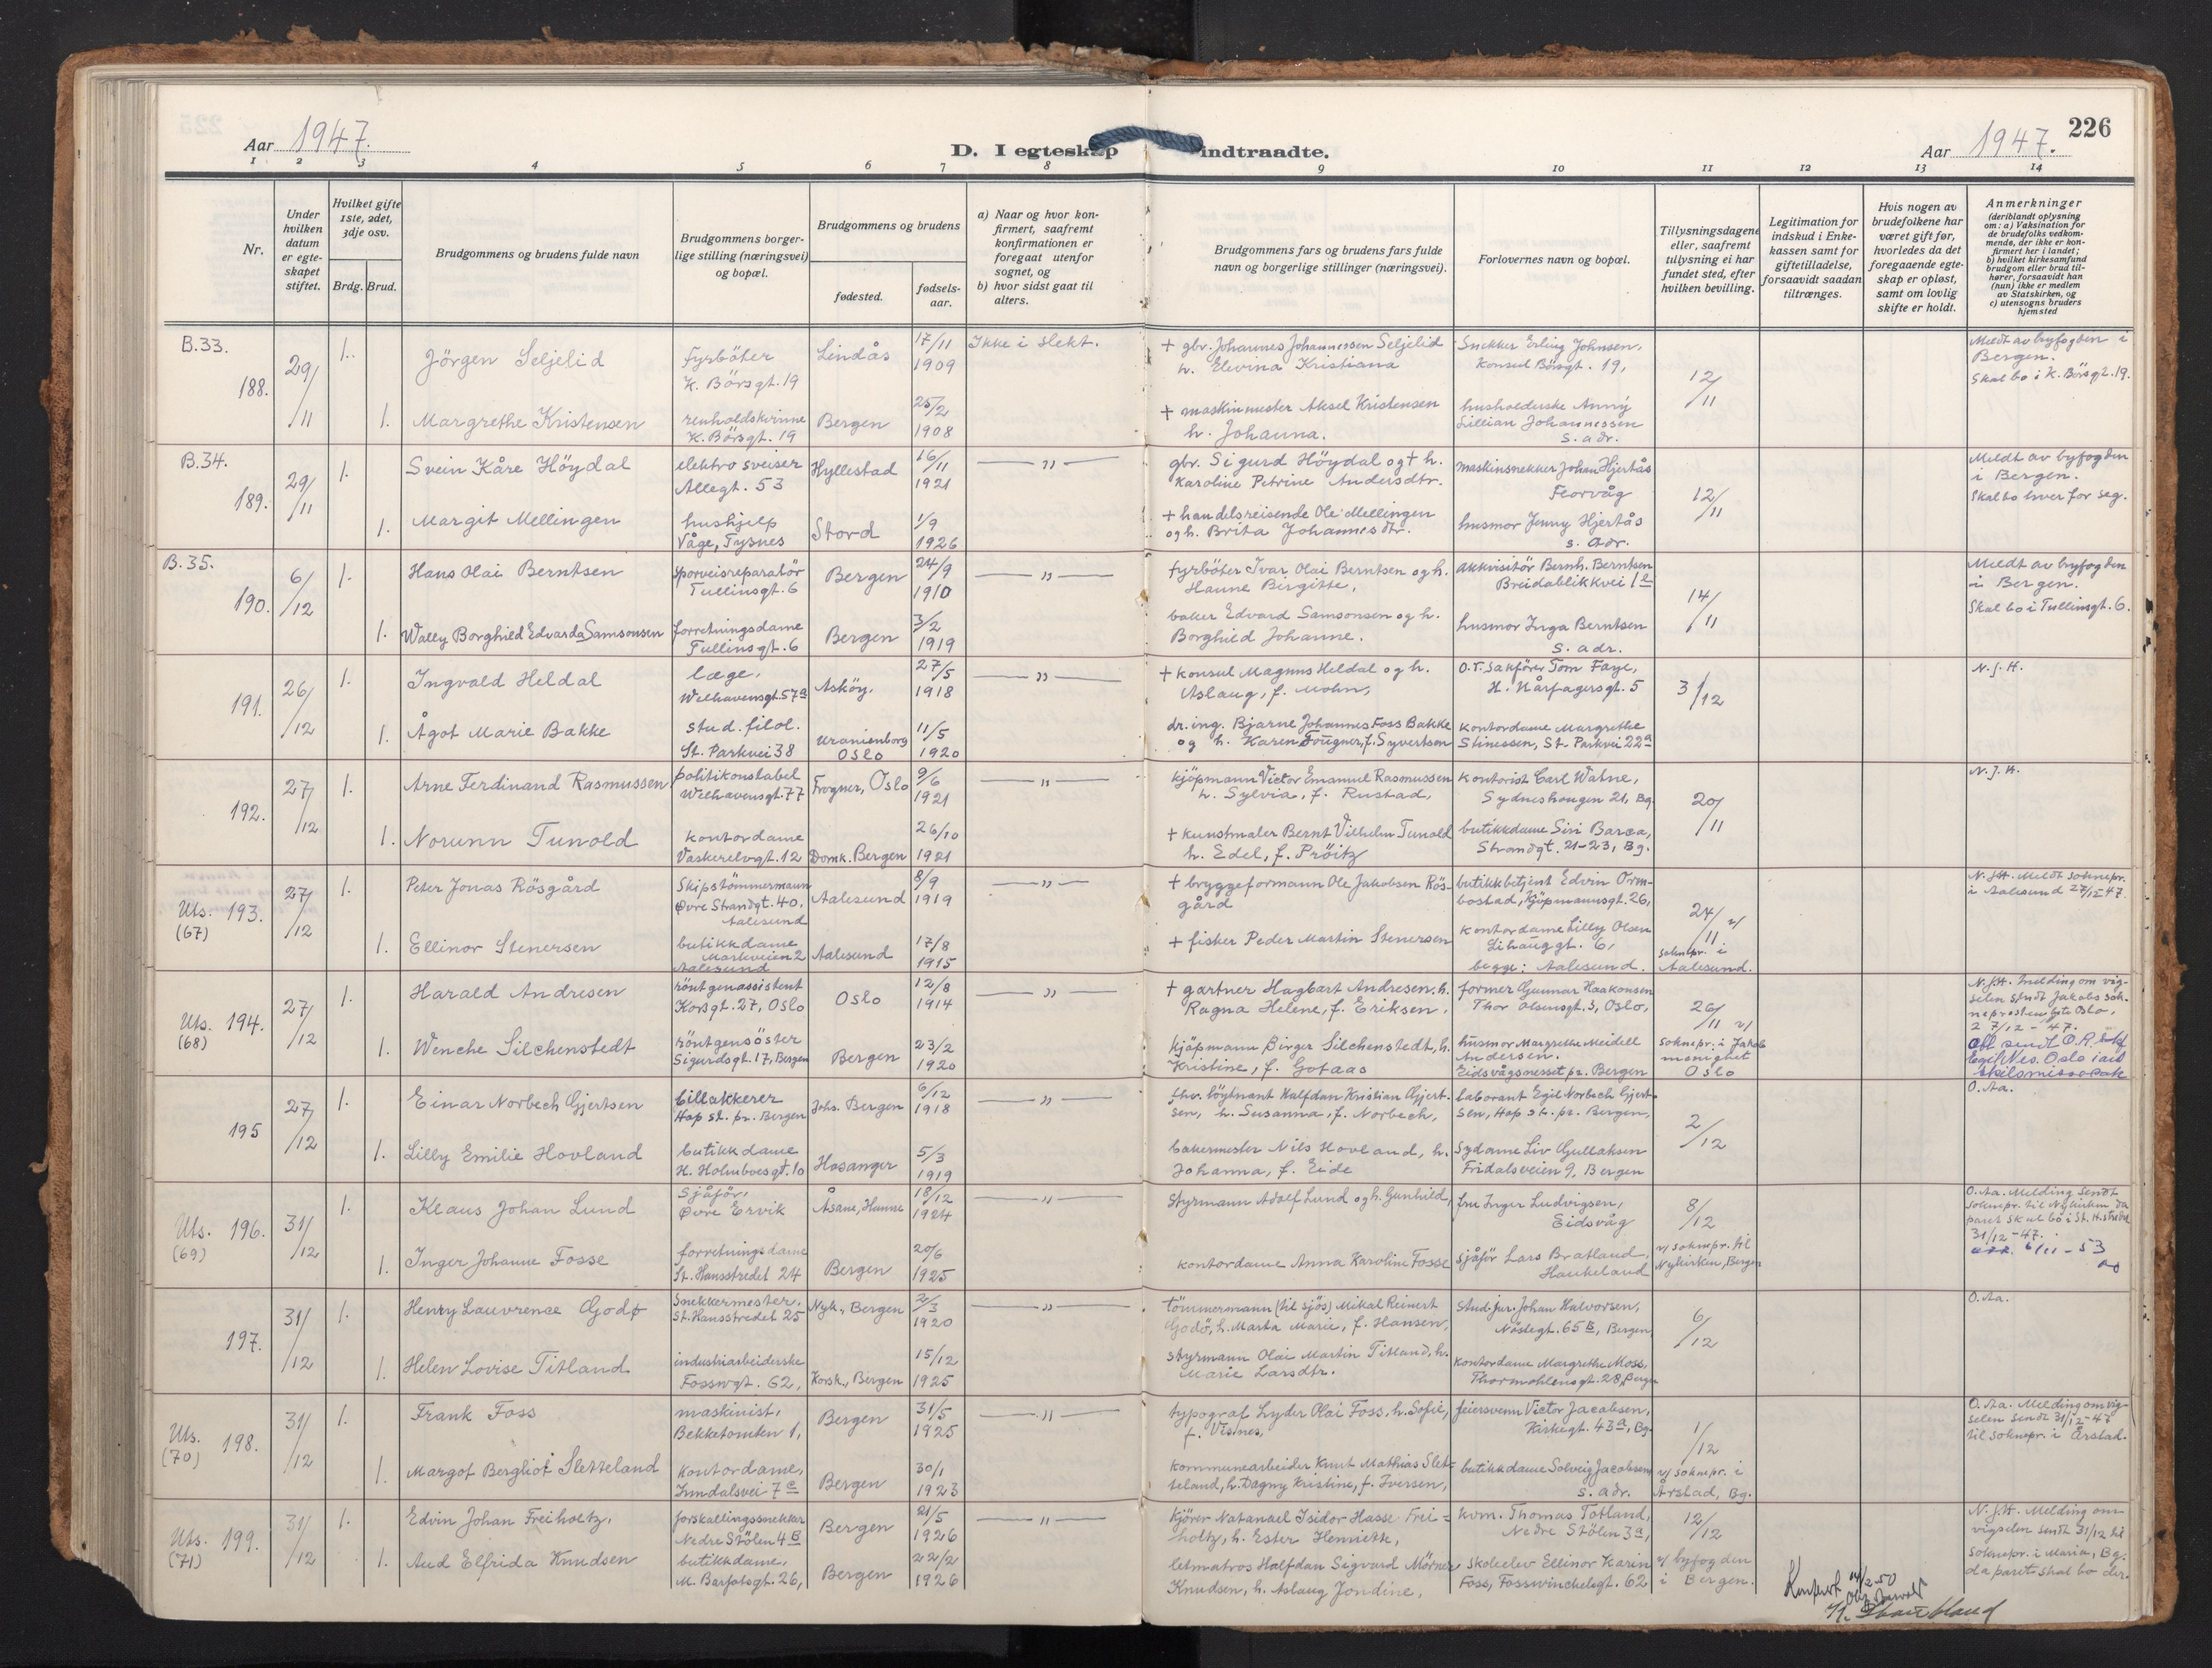 Aar 1947.
D. I egteskap indtraadte.
Aar 1947.
226
1 2 3 4 5 6 7 8 9 10 11 12 13 14
Nr.
Under hvilken datum er egteskapet stiftet.
Hvilket gifte 1ste, 2det, 3dje osv.
Brdg. Brud.
Brudgommens og brudens fulde navn
Brudgommens borgerlige stilling (næringsvei) og bopæl.
Brudgommens og brudens
fødested.
fødselsaar.
a) Naar og hvor konfirmert, saafremt konfirmationen er foregaat utenfor sognet, og
b) hvor sidst gaat til alters.
Brudgommens fars og brudens fars fulde navn og borgerlige stillinger (næringsvei).
Forlovernes navn og bopæl.
Tillysningsdagene eller, saafremt tillysning ei har fundet sted, efter hvilken bevilling.
Legitimation for indskud i Enkekassen samt for giftetilladelse, forsaavidt saadan tiltrænges.
Hvis nogen av brudefolkene har været gift før, hvorledes da det foregaaende egteskap er opløst, samt om lovlig skifte er holdt.
Anmerkninger
(deriblandt oplysning om: a) Vaksination for de brudefolks vedkommende, der ikke er konfirmert her i landet; b) hvilket kirkesamfund brudgom eller brud tilhører, forsaavidt han (hun) ikke er medlem av Statskirken, og c) utensogns bruders hjemsted
B.33. 188. 29/11 1. Jörgen Seljelid fyrböter K. Börsgt. 19 Lindås 17/11 1909 Ikke i slekt. + gbr. Johannes Johannessen Seljelid h. Elevina Kristiana Snekker Erling Johnsen, Konsul Börsgt. 19, 12/11 Meldt av byfogden i Bergen. Skal bo i K. Börsgt. 19.
1. Margrethe Kristensen renholdskvinne K. Börsgt. 19 Bergen 25/2 1908 + maskinmester Aksel Kristensen h. Johanna. husholderske Anny Lillian Johannessen s. adr.
B.34. 189. 29/11 1. Svein Kåre Höydal elektro sveiser Allegt. 53 Hyllestad 16/11 1921 — " — gbr. Sigurd Höydal og + h. Karoline Petrine Andersdtr. maskinsnekker Johan Hjertås Florvåg 12/11 Meldt av byfogden i Bergen. Skal bo hver for seg.
1. Margit Mellingen hushjelp Våge, Tysnes Stord 1/9 1926 + handelsreisende Ole Mellingen og h. Brita Johannesdtr. husmor Jenny Hjertås s. adr.
B.35. 190. 6/12 1. Hans Olai Berntsen sporveisreparatör Tullinsgt. 6 Bergen 24/9 1910 — " — fyrböter Ivar Olai Berntsen og h. Hanne Birgitte, akkvisitör Bernh. Berntsen Breidablikkvei 1 e 14/11 Meldt av byfogden i Bergen. Skal bo i Tullinsgt. 6.
1. Wally Borghild Edvarda Samsonsen forretningsdame Tullinsgt. 6 Bergen 3/2 1919 baker Edvard Samsonsen og h. Borghild Johanne. husmor Inga Berntsen s. adr.
191. 26/12 1. Ingvald Heldal læge, Welhavensgt. 57 a Asköy, 27/5 1918 — " — + konsul Magnus Heldal og h. Aslaug, f. Mohn, O.r.sakförer Tom Faye, H. Hårfagersgt. 5 3/12 N.J.H.
1. Ågot Marie Bakke stud. filol. St. Parkvei 38 Uranienborg Oslo 11/5 1920 dr. ing. Bjarne Johannes Foss Bakke og h. Karen Fougner, f. Syvertsen kontordame Margrethe Stinessen, St. Parkvei 22 a
192. 27/12 1. Arne Ferdinand Rasmussen politikonstabel Welhavensgt. 77 Frogner, Oslo 9/6 1921 — " — kjöpmann Victor Emanuel Rasmussen h. Sylvia, f. Rustad, kontorist Carl Watne, Sydneshaugen 21, Bg. 20/11 N.J.H.
1. Norunn Tunold kontordame Vaskerelvgt. 12 Domk. Bergen 26/10 1921 + kunstmaler Bernt Vilhelm Tunold h. Edel, f. Pröitz butikkdame Siri Barca, Strandgt. 21-23, Bg.
Uts. (67) 193. 27/12 1. Peter Jonas Rösgård Skipstömmermann Øvre Strandgt. 40, Aalesund Aalesund 8/9 1919 — " — + bryggeformann Ole Jakobsen Rösgård butikkbetjent Edvin Ormbostad, Kjöpmannsgt. 26, 24/11 v/ soknepr. i Aalesund. N.J.H. Meldt soknepr. i Aalesund 27/12 47.
1. Ellinor Stenersen butikkdame Markveien 2 Aalesund Aalesund 17/8 1915 + fisker Peder Martin Stenersen kontordame Lilly Olsen Lihauggt. 6, begge: Aalesund.
Uts. (68) 194. 27/12 1. Harald Andresen röntgenassistent Korsgt. 27, Oslo Oslo 12/8 1914 — " — + gartner Hagbart Andresen, h. Ragna Helene, f. Eriksen, former Gunnar Haakonsen Thor Olsensgt. 3, Oslo, 26/11 v/ soknepr. i Jakob menighet Oslo N.J.H. Melding om vigselen sendt Jakobs sokneprestembete Oslo, 27/12-47.
1. Wenche Silchenstedt röntgensöster Sigurdsgt. 17, Bergen Bergen 23/2 1920 kjöpmann Birger Silchenstedt, h. Kristine, f. Gotaas husmor Margrethe Meidell Andersen. Eidsvågsnesset pr. Bergen
195 27/12 1. Einar Norbech Gjertsen billakkerer Hop st. pr. Bergen Johs. Bergen 6/12 1918 — " — fhv. löytnant Halfdan Kristian Gjertsen, h. Susanna, f. Norbech, laborant Egil Norbech Gjertsen, Hop st. pr. Bergen, 2/12 O.Aa.
1. Lilly Emilie Hovland butikkdame H. Holmboesgt. 10 Hosanger 5/3 1919 bakermester Nils Hovland, h. Johanna, f. Eide Sydame Liv Gullaksen Fridalsveien 9, Bergen
Uts. (69) 196. 31/12 1. Klaus Johan Lund Sjåför, Øvre Ervik Åsane, Hamre 18/12 1924 — " — styrmann Adolf Lund og h. Gunhild, fru Inger Ludvigsen, Eidsvåg 8/12 v/ soknepr. til Nykirken, Bergen O.Aa. Melding sendt soknepr. til Nykirken da paret skal bo i St. H. stredet 31/12-47. 6/11-53
1. Inger Johanne Fosse forretningsdame St. Hansstredet 24 Bergen 20/6 1925 kontordame Anna Karoline Fosse sjåför Lars Bratland, Haukeland
197. 31/12 1. Henry Lauvrence Godø Snekkermester, St. Hansstredet 25 Nyk., Bergen 2/3 1920 — " — tömmermann (til sjös) Mikal Reinert Godö, h. Marta Marie, f. Hansen, Stud. jur. Johan Halvorsen, Nöstegt. 65 B, Bergen 6/12 O.Aa.
1. Helen Lovise Titland industriarbeiderske Fosswgt. 62, Korsk., Bergen 15/12 1925 styrmann Olai Martin Titland, h. Marie Larsdtr. kontordame Margrethe Moss, Thormohlensgt. 28, Bergen
Uts. (70) 198. 31/12 1. Frank Foss maskinist, Bekketomten 1, Bergen 31/5 1925 — " — typograf Lyder Olai Foss, h. Sofie, f. Visnes, feiersvenn Victor Jacobsen, Kirkegt. 43 a, Bg. 1/12 v/ soknepr. i Årstad, Bg. O.Aa. Melding om vigselen sendt 31/12-47 til soknepr. i Årstad.
1. Margot Bergliot Sletteland kontordame, Lundalsvei 7 c Bergen 30/1 1923 kommunearbeider Knut Mathias Sletteland, h. Dagny Kristine, f. Iversen, butikkdame Solveig Jacobsen s. adr.
Uts. (71) 199. 31/12 1. Edvin Johan Freiholtz, forskallingssnekker Nedre Stölen 4 B Bergen 21/5 1926 — " — kjörer Natanael Isidor Hasse Freiholtz, h. Ester Henriette, kom. Thomas Totland, Nedre Stölen 3 a, 12/12 v/ byfogden i Bergen. N.J.H. Melding om vigselen sendt 31/12 til soknepr. i Maria, Bg. da paret skal bo der.
1. Aud Elfrida Knudsen butikkdame, M. Barfotsgt. 26, Bergen 22/2 1926 letmatros Halfdan Sigvard Mörner Knudsen, h. Aslaug Jondine, skoleelev Ellinor Karin Foss, Fosswinckelsgt. 62
14/2-50